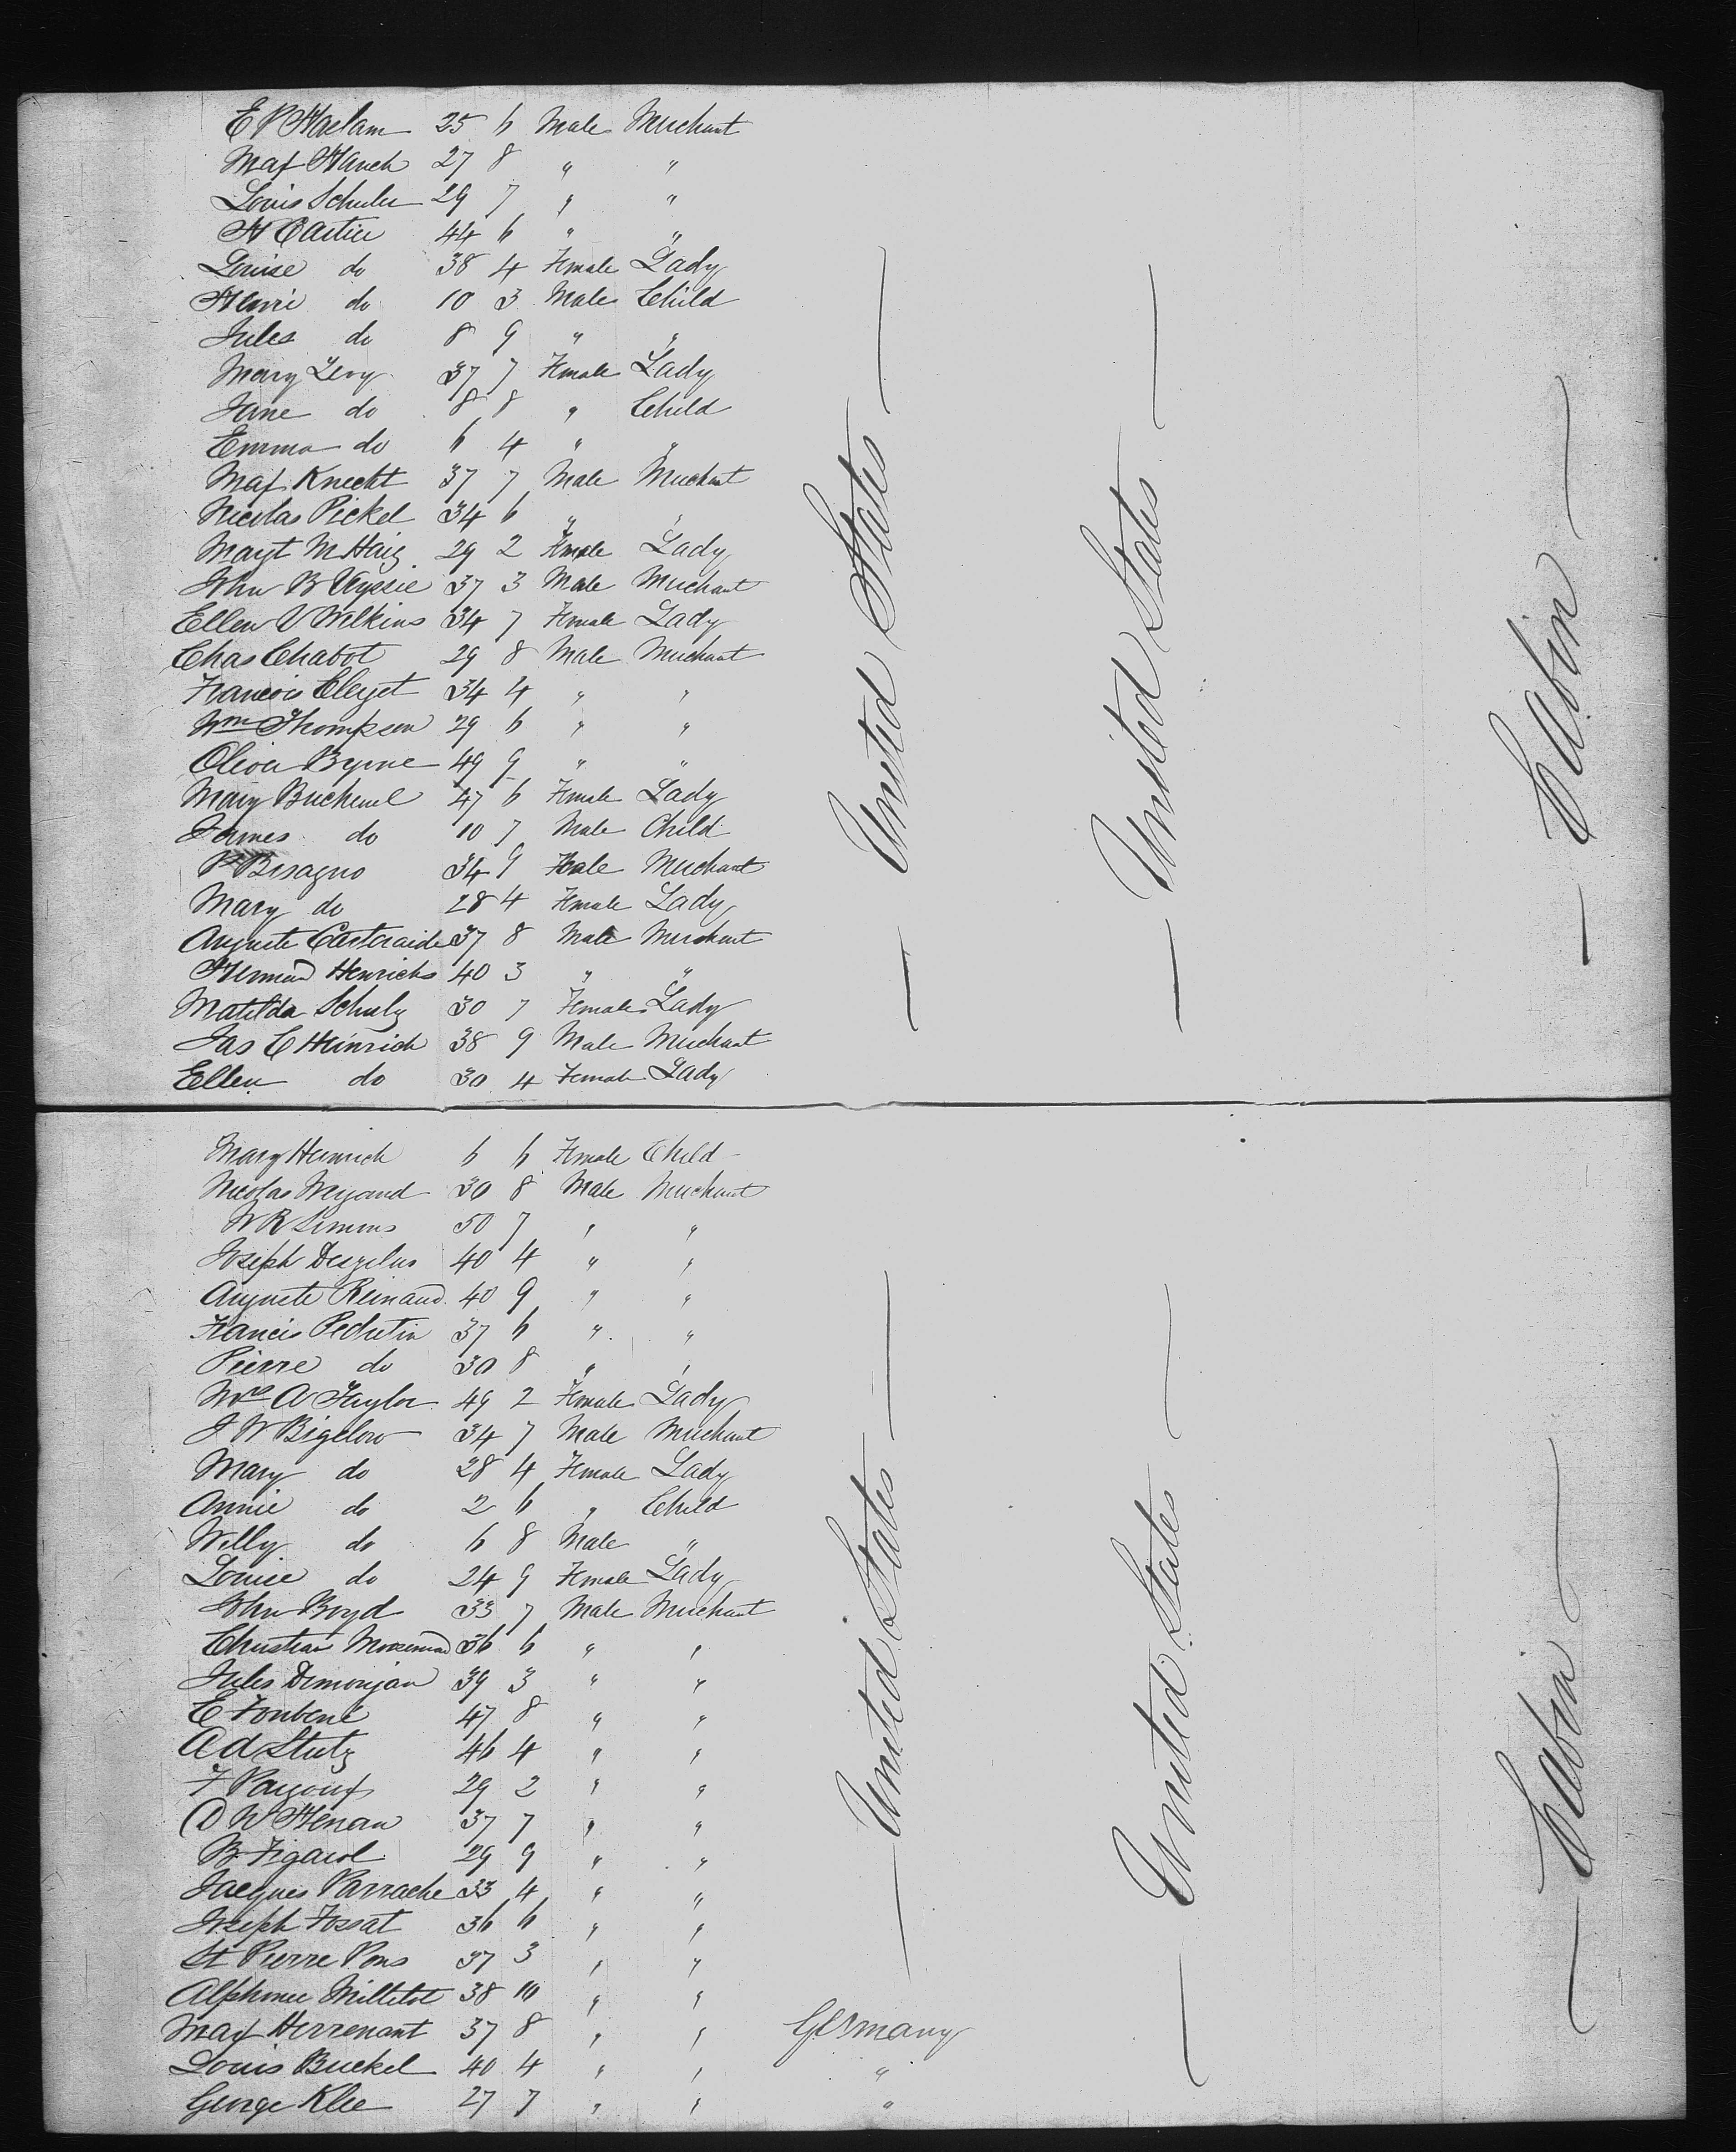 E P Haslam 25 6 Male Merchant
Max Hauch 27 8 " "
Louis Schuler 29 7 " "
H Cartier 44 6 " "
Louise do 38 4 Female Lady
Henri do 10 3 Male Child
Jules do 8 9 " "
Mary Levy 37 7 Female Lady
Jane do 8 8 " Child
Emma do 6 4 " "
Max Knecht 37 7 Male Merchant
Nicolas Pickel 34 6 " "
Magt McHaig 29 2 Female Lady
John B 37 3 Male Merchant
Ellen V Wilkins 34 7 Female Lady
Chas Chabot 29 8 Male Merchant
Francois Cleyet 34 4 " "
Wm Thompson 29 6 " "
Oliver Byrne 49 9 " "
Mary 47 6 Female Lady
James do 10 7 Male Child
P Bisagno 34 9 Male Merchant
Mary do 28 4 Female Lady
Auguste 37 8 Male Merchant
Herman Henrichs 40 3 " "
Matilda Schulz 30 7 Female Lady
Jas C Heinrich 38 9 Male Merchant
Ellen do 30 4 Female Lady
— United States —
— United States —
— Cabin —
Mary Heinrich 6 6 Female Child
Nicolas Weyand 30 8 Male Merchant
W R Simons 50 7 " "
Joseph 40 4 " "
Auguste Reinaud 40 9 " "
Francis 37 6 " "
Pierre do 30 8 " "
Mrs A Taylor 49 2 Female Lady
J W Bigelow 34 7 Male Merchant
Mary do 28 4 Female Lady
Annie do 2 6 " Child
Willy do 6 8 Male "
Louise do 24 9 Female Lady
John Boyd 33 7 Male Merchant
Christian 36 6 " "
Jules 39 3 " "
E 47 8 " "
Ad Stutz 46 4 " "
F 29 2 " "
D W Henan 37 7 " "
B Figarol 29 9 " "
Jacques Parrache 33 4 " "
Joseph Fossat 36 6 " "
St Pierre Pons 37 3 " "
Alphonse 38 10 " "
Max Herrenant 37 8 " " Germany
Louis Buckel 40 4 " " "
George Klee 27 7 " " "
— United States —
— United States —
— Cabin —